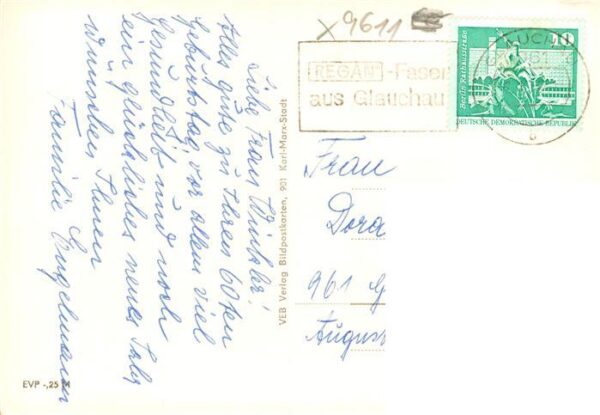 Liebe Frau Winkler!
Alles gute zu Ihren 60ten
Geburtstag, vor allem viel
Gesundheit und noch
ein glückliches neues Jahr
wünschen Ihnen
Familie Engelmann
EVP -,25 M
VEB Verlag Bildpostkarten, 901 Karl-Marx-Stadt
x 9611
REGAN -Faser
aus Glauchau
10
Berlin-Rathausstrasse
DEUTSCHE DEMOKRATISCHE REPUBLIK
Frau
Dora
961 G
August